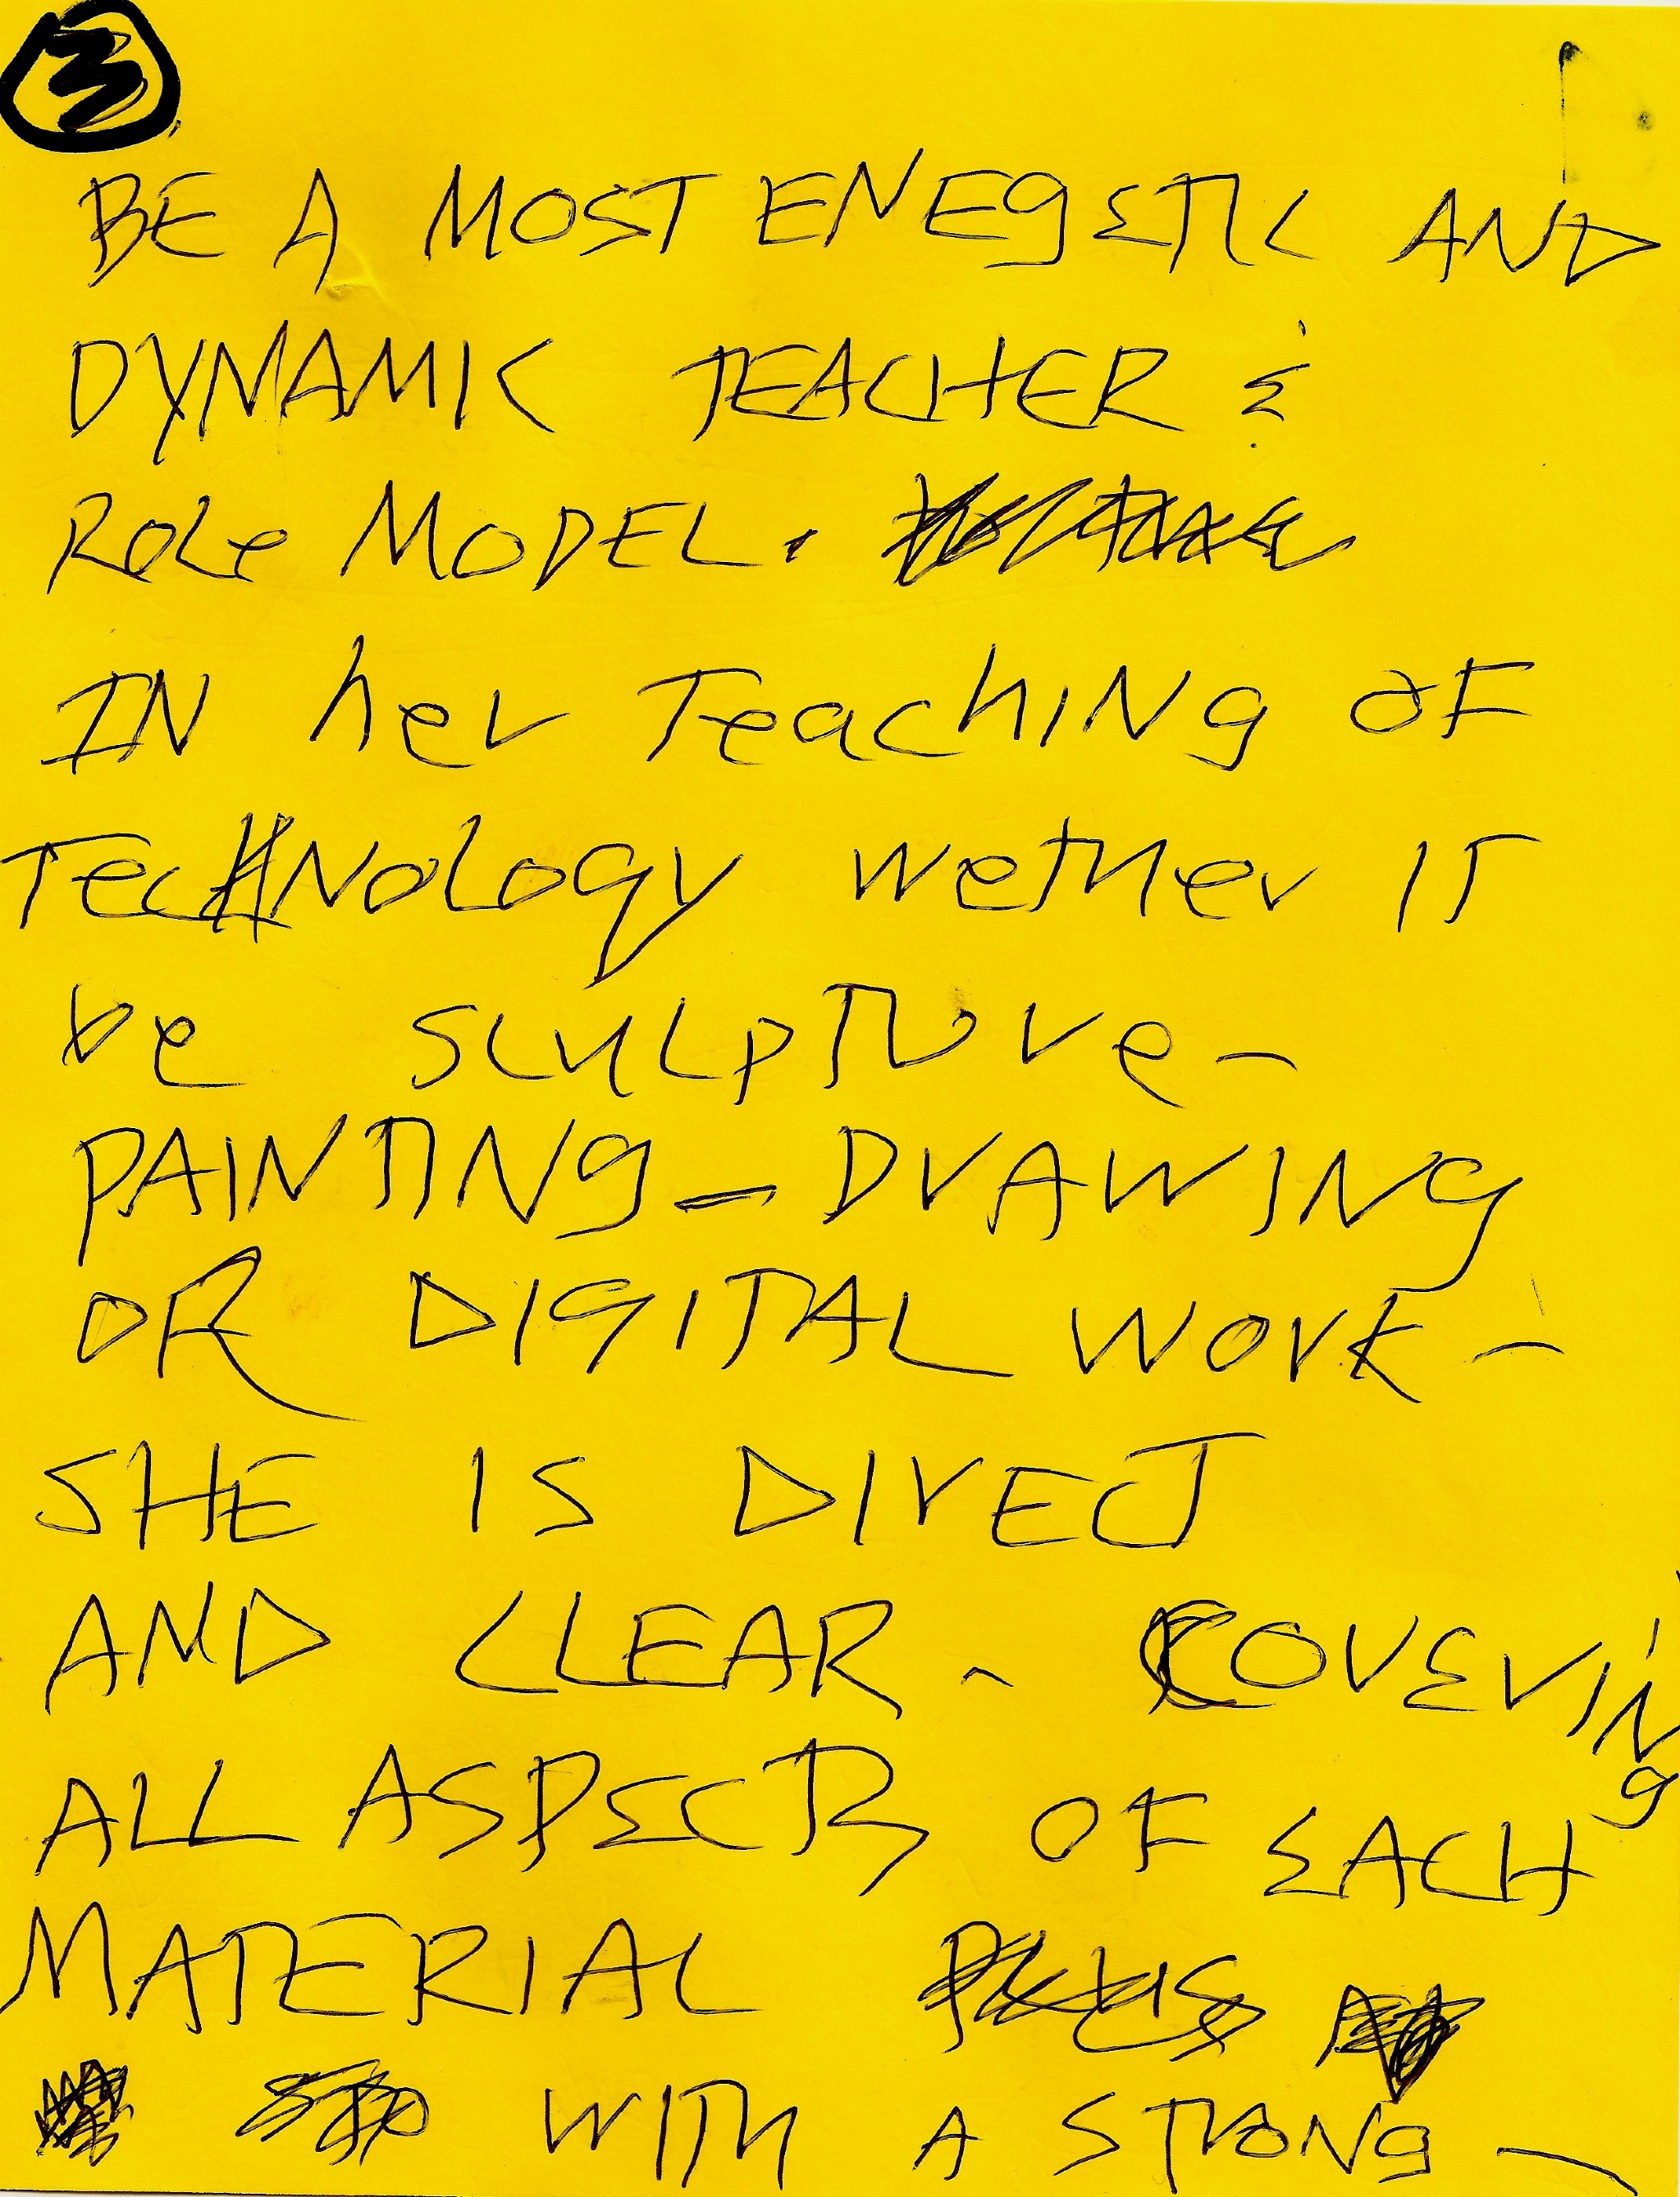 3
BE A MOST ENEGETIC AND
DYNAMIC TEACHER &
ROLe MODEL.
IN her TeachiNg OF
TecHNology wether IT
be sculpture-
PAINTINg - DrAWINg
OR DIgITAL work -
SHE IS DIrECT
AND CLEAR - COVErINg
ALL ASPECTS OF EACH
MATERIAL
WITh A STrONg -